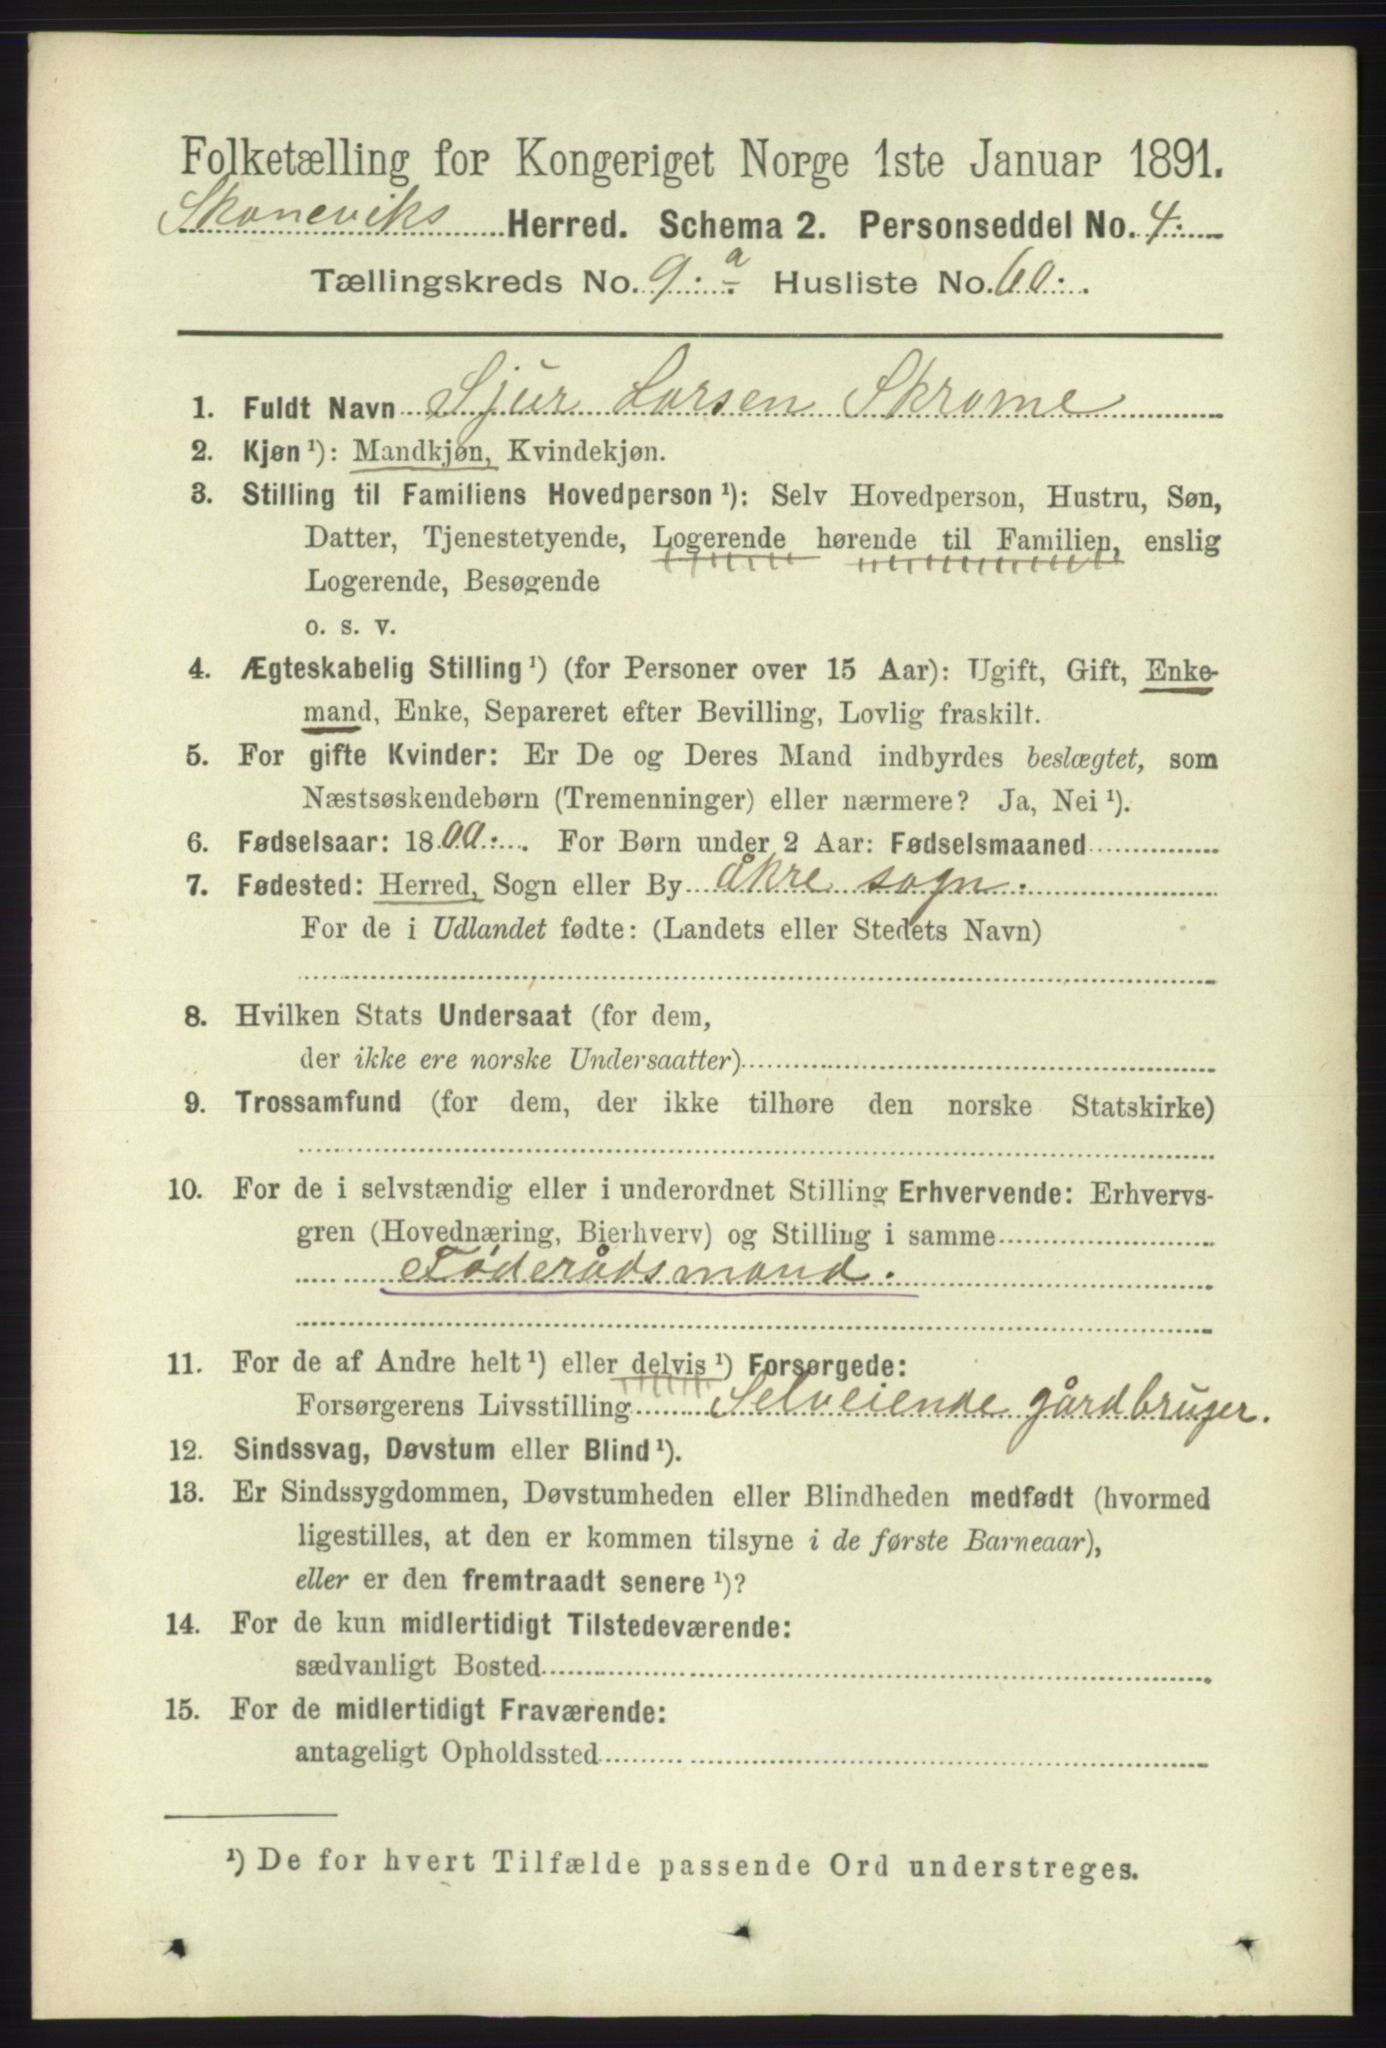 Folketælling for Kongeriget Norge 1ste Januar 1891.
Skoneviks Herred. Schema 2. Personseddel No. 4.
Tællingskreds No. 9. a Husliste No. 60.
1. Fuldt Navn Sjur Larsen Skrome
2. Kjøn ¹): Mandkjøn, Kvindekjøn.
3. Stilling til Familiens Hovedperson ¹): Selv Hovedperson, Hustru, Søn,
Datter, Tjenestetyende, Logerende hørende til Familien, enslig
Logerende, Besøgende
o. s. v.
4. Ægteskabelig Stilling ¹) (for Personer over 15 Aar): Ugift, Gift, Enke-
mand, Enke, Separeret efter Bevilling, Lovlig fraskilt.
5. For gifte Kvinder: Er De og Deres Mand indbyrdes beslægtet, som
Næstsøskendebørn (Tremenninger) eller nærmere? Ja, Nei ¹).
6. Fødselsaar: 1800. For Børn under 2 Aar: Fødselsmaaned
7. Fødested: Herred, Sogn eller By Åkre sogn.
For de i Udlandet fødte: (Landets eller Stedets Navn)
8. Hvilken Stats Undersaat (for dem,
der ikke ere norske Undersaatter)
9. Trossamfund (for dem, der ikke tilhøre den norske Statskirke)
10. For de i selvstændig eller i underordnet Stilling Erhvervende: Erhvervs-
gren (Hovednæring, Bierhverv) og Stilling i samme
Føderådsmand.
11. For de af Andre helt ¹) eller delvis ¹) Forsørgede:
Forsørgerens Livsstilling Selveiende gårdbruger.
12. Sindssvag, Døvstum eller Blind ¹).
13. Er Sindssygdommen, Døvstumheden eller Blindheden medfødt (hvormed
ligestilles, at den er kommen tilsyne i de første Barneaar),
eller er den fremtraadt senere ¹)?
14. For de kun midlertidigt Tilstedeværende:
sædvanligt Bosted
15. For de midlertidigt Fraværende:
antageligt Opholdssted
¹) De for hvert Tilfælde passende Ord understreges.